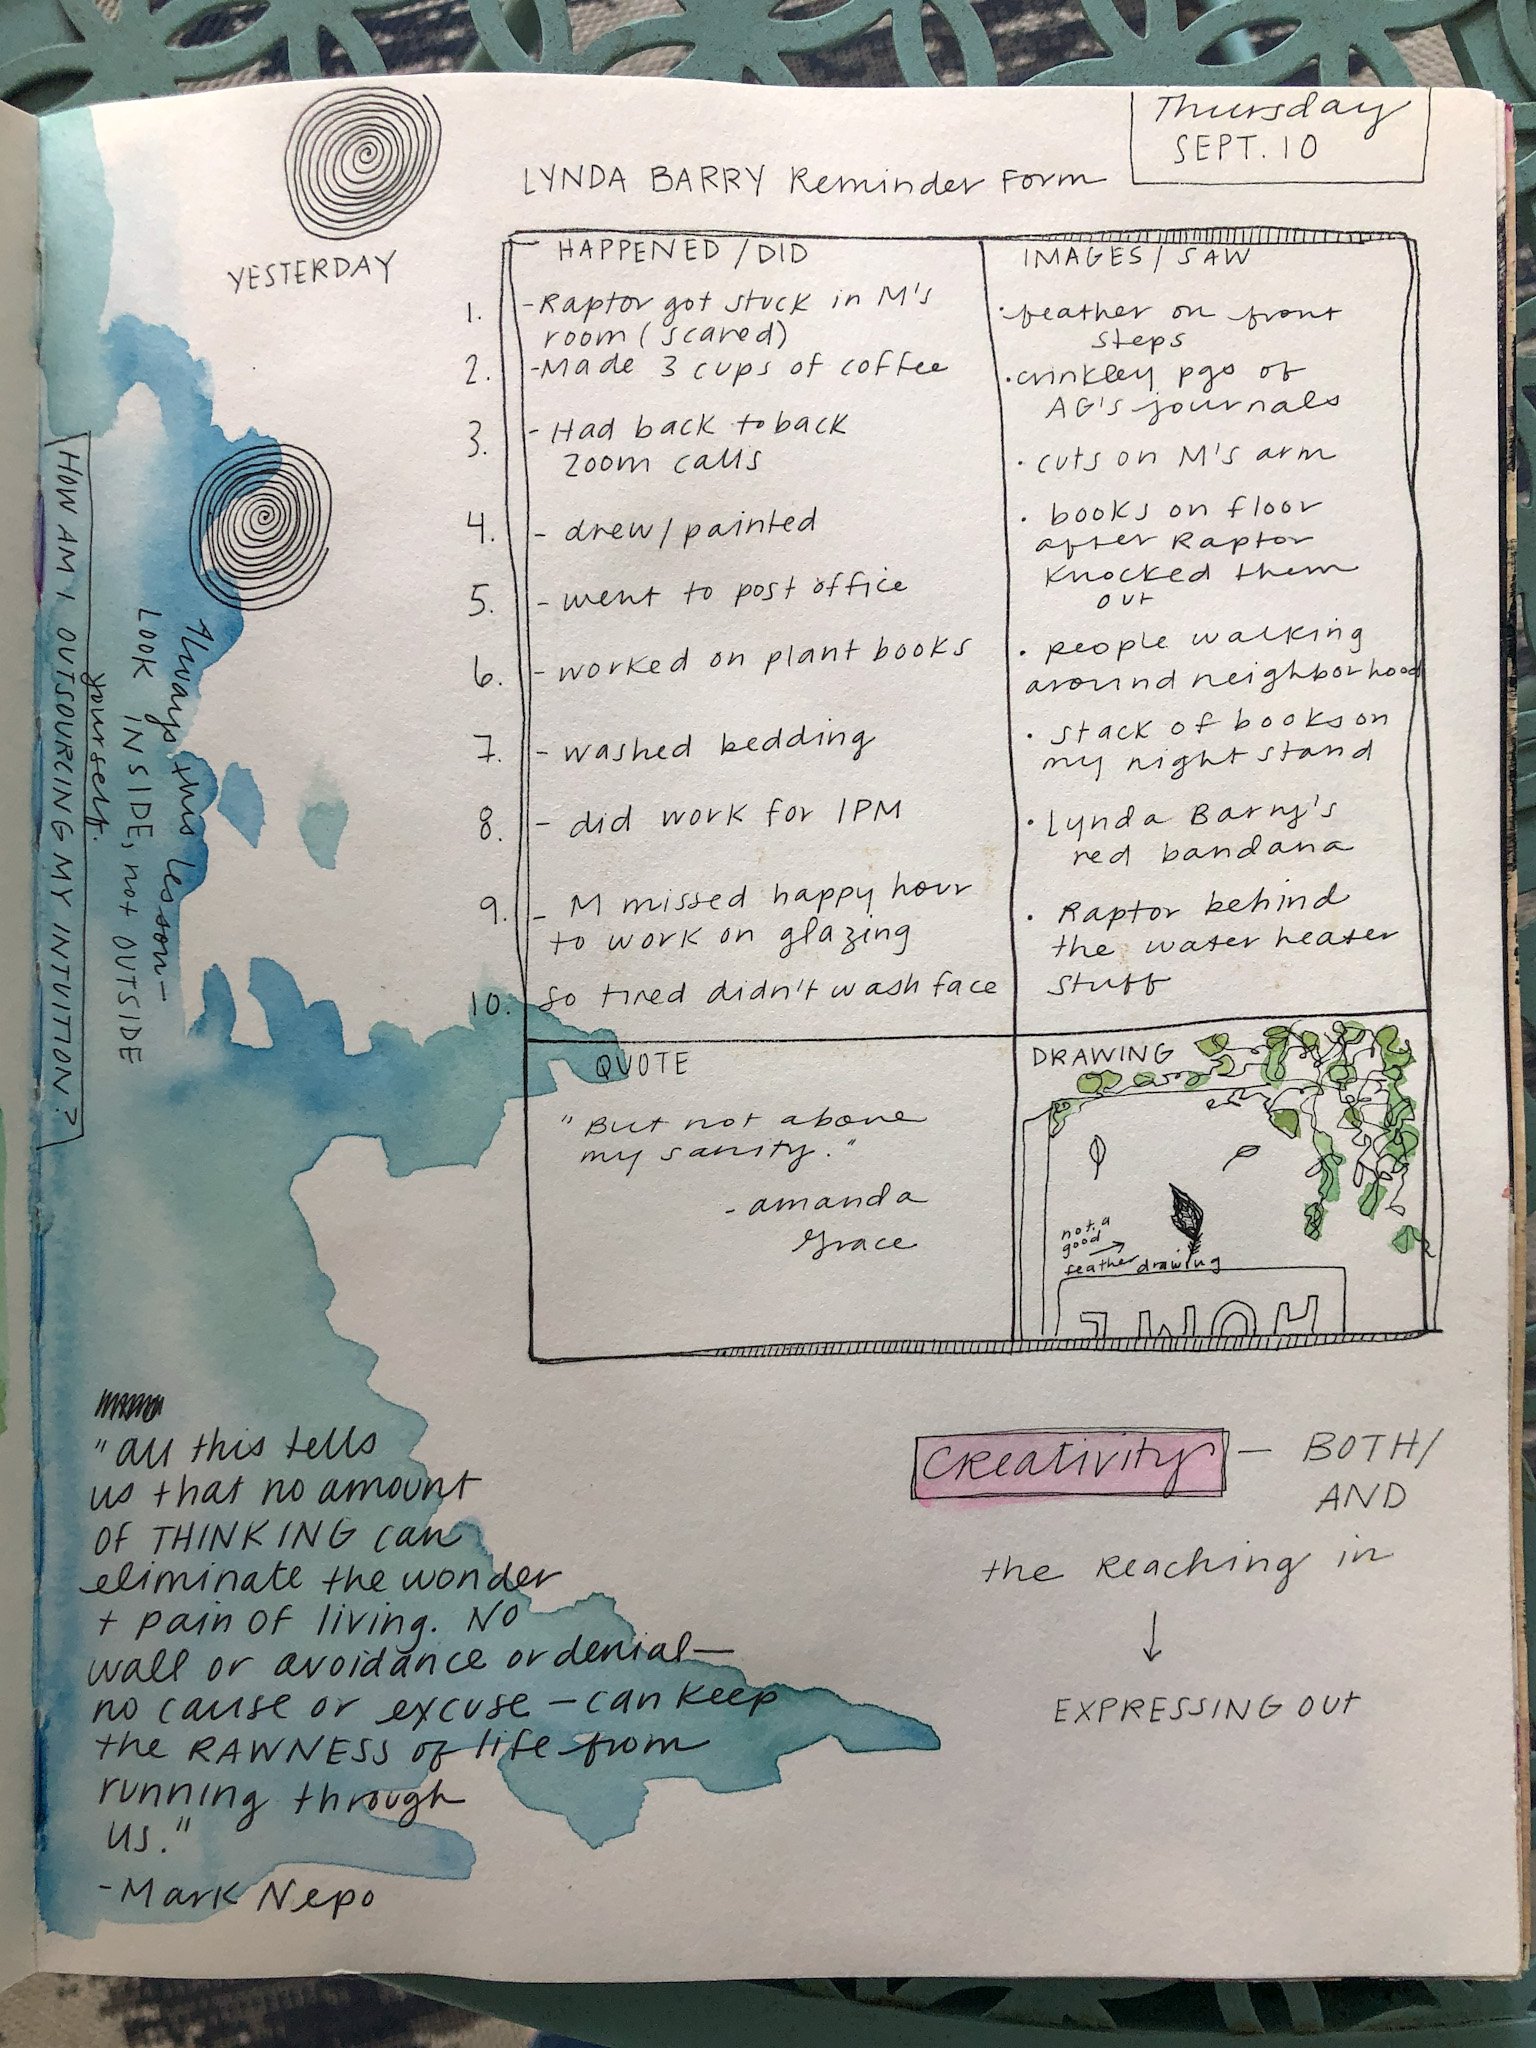 Thursday
SEPT. 10
LYNDA BARRY Reminder Form
YESTERDAY
HAPPENED / DID
1. - Raptor got stuck in M's
room (scared)
2. - Made 3 cups of coffee
3. - Had back to back
zoom calls
4. - drew / painted
5. - went to post office
6. - worked on plant books
7. - washed bedding
8. - did work for IPM
9. - M missed happy hour
to work on glazing
10. so tired didn't wash face
IMAGES / SAW
• feather on front
steps
• crinkley pgs of
AG's journals
• cuts on M's arm
• books on floor
after Raptor
knocked them
out
• people walking
around neighborhood
• stack of books on
my night stand
• Lynda Barry's
red bandana
• Raptor behind
the water heater
stuff
QUOTE
"But not above
my sanity."
- amanda
grace
DRAWING
not a
good
feather drawing
HOME
Always this lesson—
LOOK INSIDE, not OUTSIDE
yourself.
HOW AM I OUTSOURCING MY INTUITION?
"all this tells
us that no amount
OF THINKING can
eliminate the wonder
+ pain of living. No
wall or avoidance or denial—
no cause or excuse — can keep
the RAWNESS of life from
running through
us."
- Mark Nepo
Creativity — BOTH/
AND
the Reaching in
↓
EXPRESSING OUT